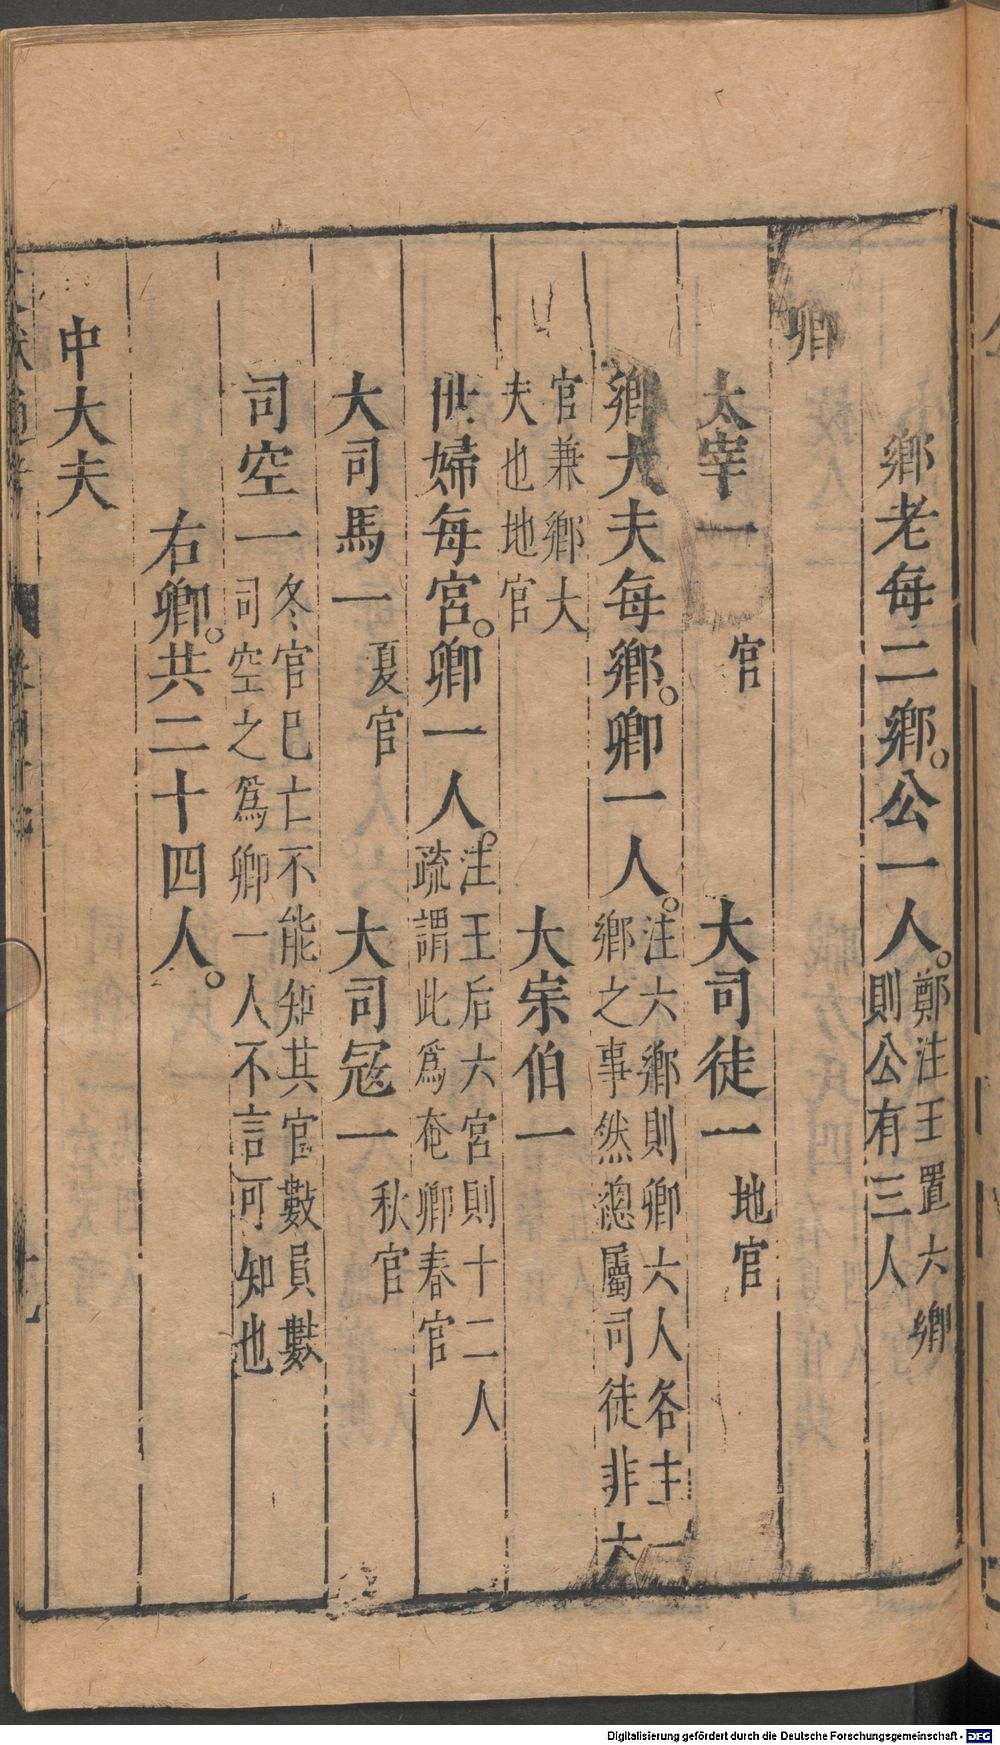 鄉老每二鄉。公一人。鄭注王置六卿則公有三人
卿
太宰一 官 大司徒一 地官
鄉大夫每鄉。卿一人。注六鄉則卿六人各主一鄉之事然總屬司徒非六
官兼鄉大夫也地官 大宗伯一
世婦每宮。卿一人。注王后六宮則十二人疏謂此爲奄卿春官
大司馬一 夏官 大司冦一 秋官
司空一 冬官已亡不能知其官數員數司空之爲卿一人不言可知也
右卿。共二十四人。
中大夫
Digitalisierung gefördert durch die Deutsche Forschungsgemeinschaft - DFG